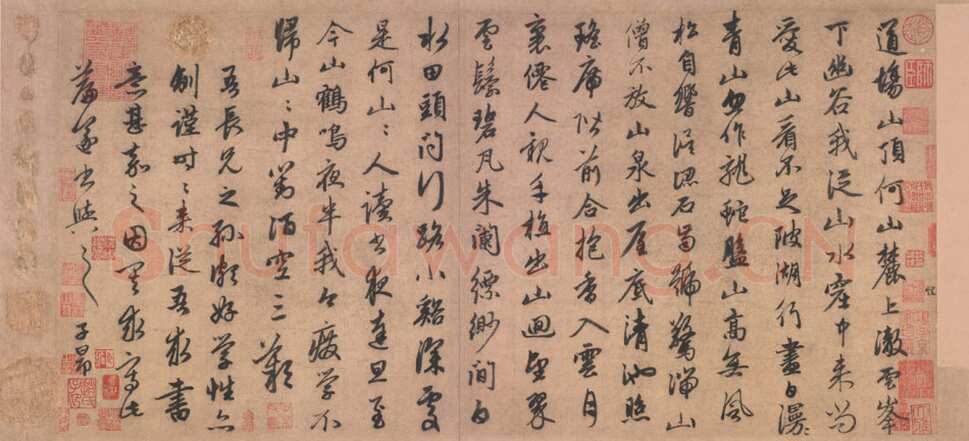 道場山頂何山麓上澈雲峯
下幽谷我從山水窟中来尚
愛此山看不足陂湖行盡白漫〻
青山忽作龍蛇盤山高無風
松自響誤認石齒號驚湍山
僧不放山泉出屋底清池照
瑤席階前合抱香入雲月
裏僊人親手植出山迴望翠
雲鬟碧瓦朱闌縹緲間白
水田頭問行路小谿深處
是何山〻人讀書夜達旦至
今山鶴鳴夜半我今廢學不
歸山〻中對酒空三歎
吾長兄之孫頗好學性亦
謹時〻来從吾求書
意甚嘉之因求寫此
篇遂書與之
子昂
Shufawang.CN